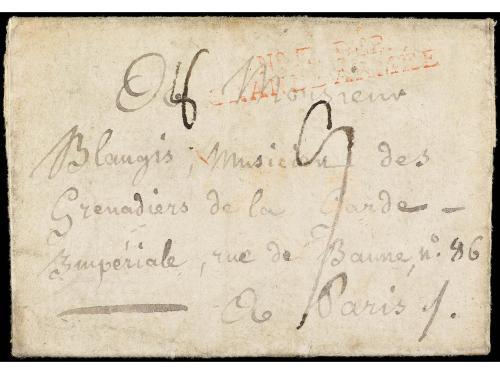 GRANDE ARMÉE
A Monsieur
Blangis, Musicien des
Grenadiers de la Garde -
Impériale, rue de Baune, n.° 86
A Paris